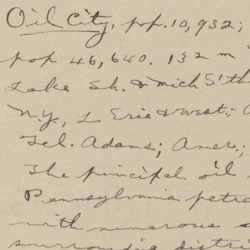 Oil City, pop. 10,932;
pop 46,640. 132 m
Lake Sh. & Mich S'th
N.Y., L. Erie & West;
Tel. Adams; Amer.
The principal oil
Pennsylvania petro
with numerous
surrounding distri